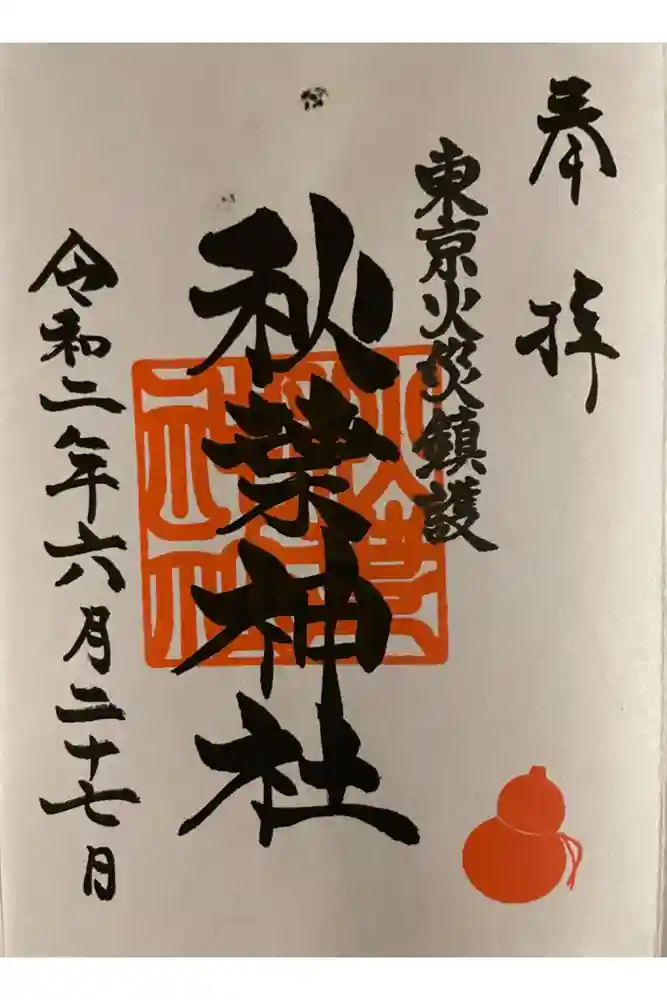 奉拝
東京火災鎮護
秋葉神社
令和二年六月二十七日